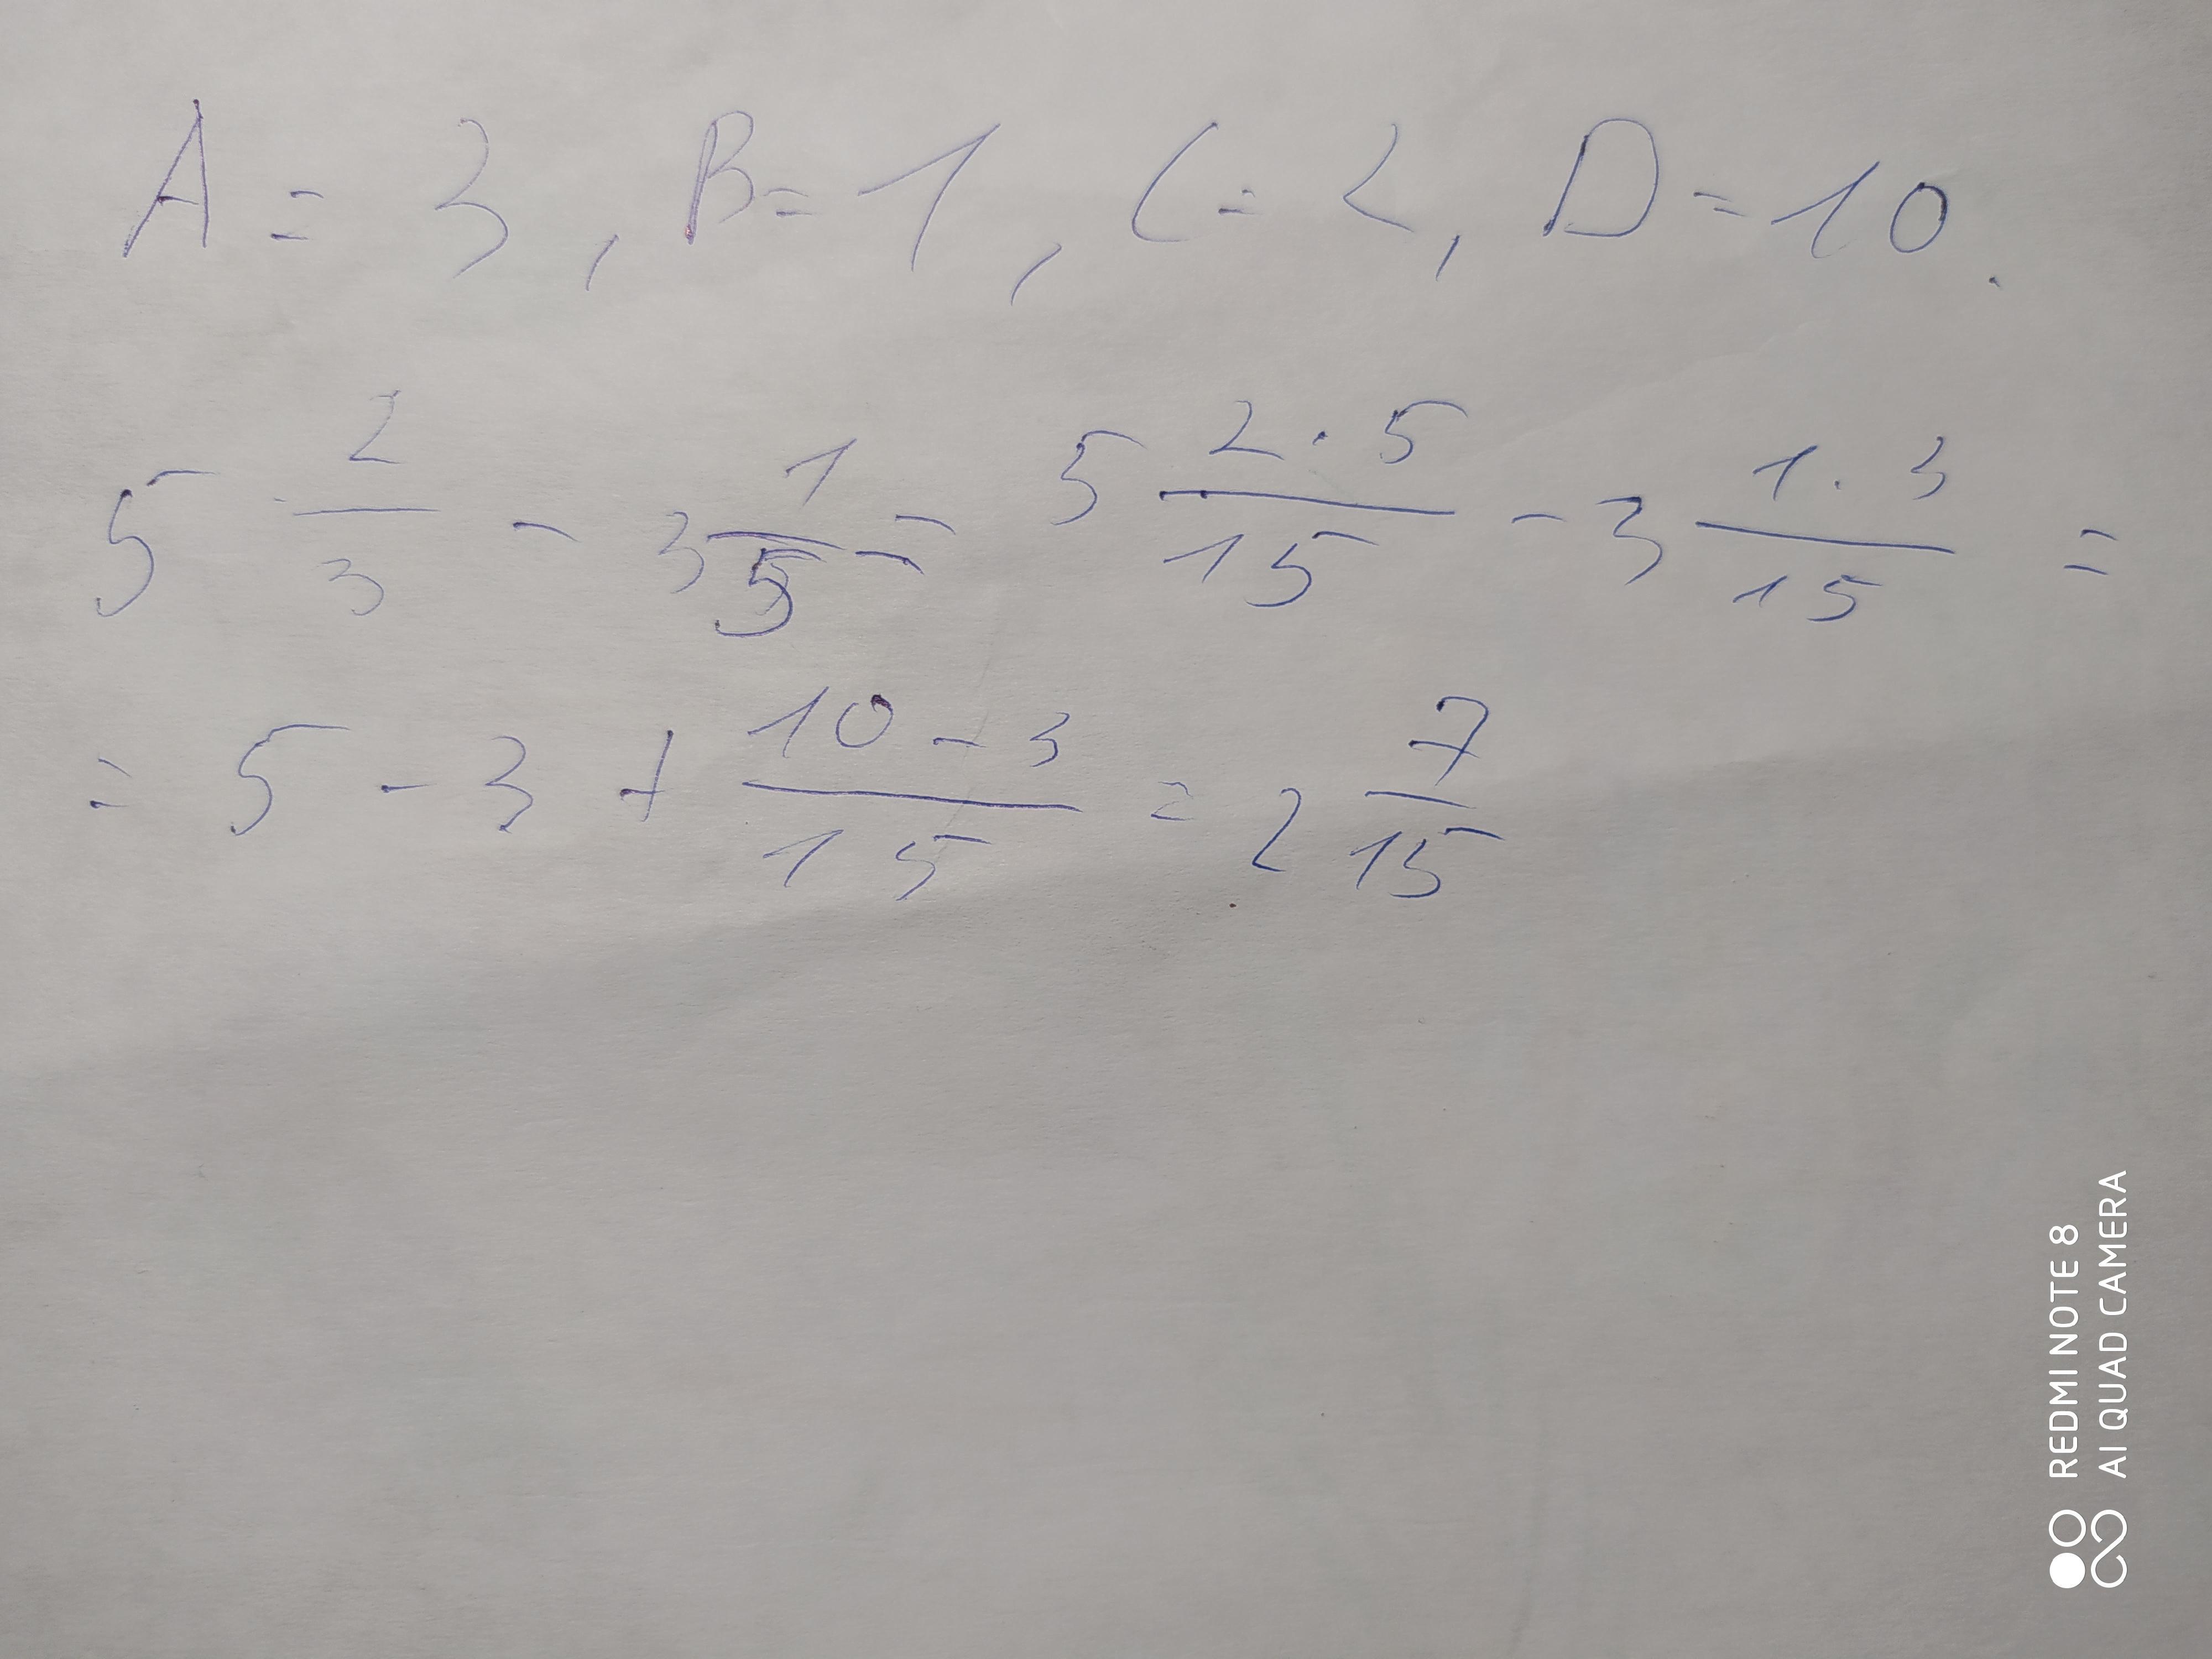 A = 3, B = 1, C = 2, D = 10.
5 2/3 - 3 1/5 = 5 2·5/15 - 3 1·3/15 =
= 5 - 3 + 10-3/15 = 2 7/15
REDMI NOTE 8
AI QUAD CAMERA